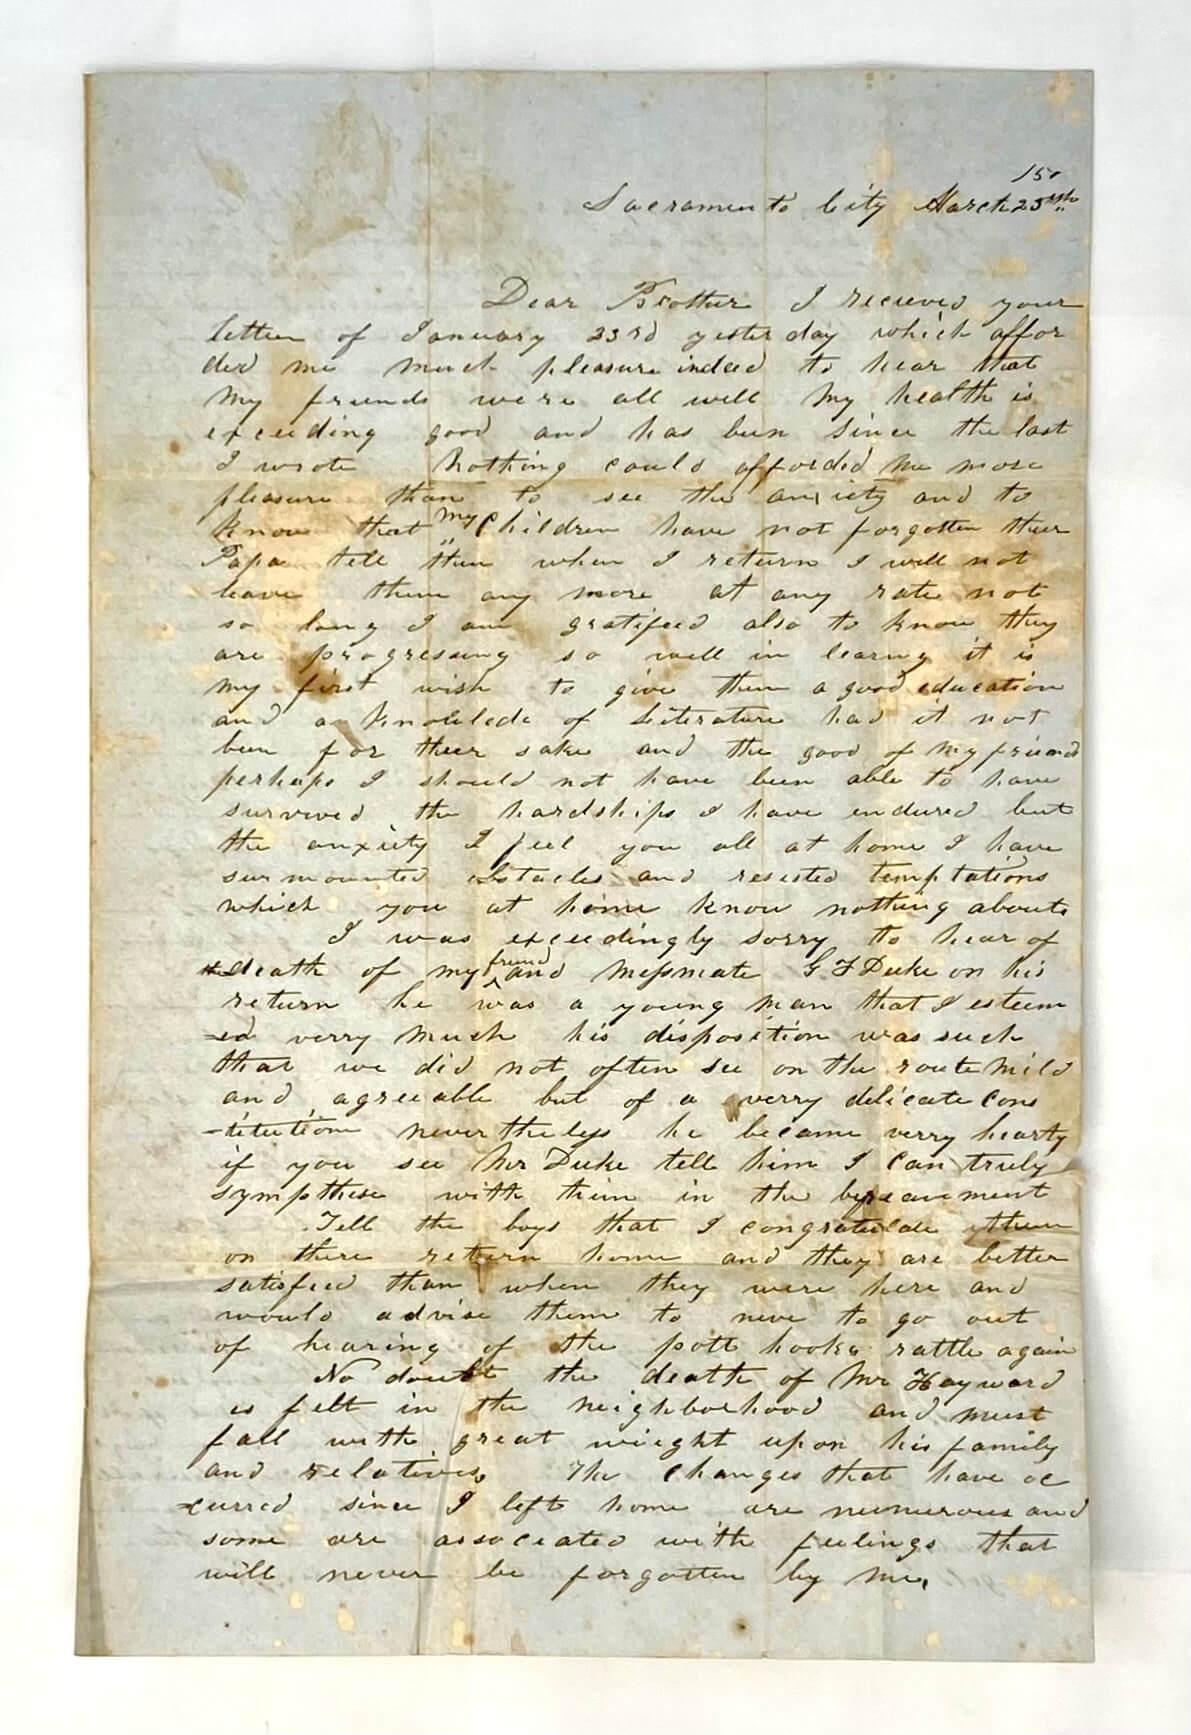 Sacramento City March 25th
Dear Brother I recieved your
letter of January 23rd yesterday which affor
ded me much pleasure indeed to hear that
My friends were all well My health is
exceeding good and has been since the last
I wrote Nothing could afforded me more
pleasure than to see the anxiety and to
know that my Children have not forgotten their
Papa tell them when I return I will not
leave them any more at any rate not
so long I am gratified also to know they
are progressing so well in learng it is
my first wish to give them a good education
and a knoleledc of Literature had it not
been for their sake and the good of My friends
perhaps I should not have been able to have
survived the hardships I have endured but
the anxiety I feel you all at home I have
surmounted obstacles and resisted temptations
which you at home know nothing about
I was exceedingly sorry to hear of
death of my friend and messmate G F Duke on his
return he was a young man that I esteem
=ed verry much his disposition was such
that we did not often see on the route Mild
and agreeable but of a verry delicate cons
=titution nevertheless he became verry hearty
if you see Mr Duke tell him I can truly
sympthise with them in the bereavement
Tell the boys that I congratulate them
on there return home and they are better
satisfied than when they were here and
would advise them to neve to go out
of hearing of the pott hooks rattle again
No doubt the death of Mr Hayward
is felt in the neighborhood and must
fall with great wieght upon his family
and relatives The changes that have oc
=curred since I left home are numerous and
some are associated with feelings that
will never be forgotten by me,